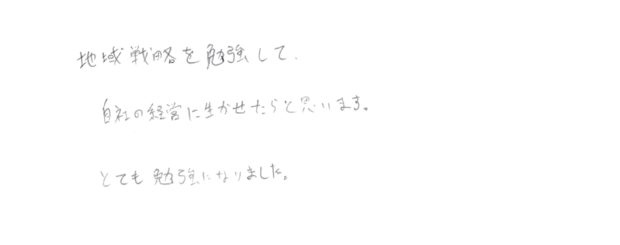 地域戦略を勉強して、
自社の経営に生かせたらと思います。
とても勉強になりました。